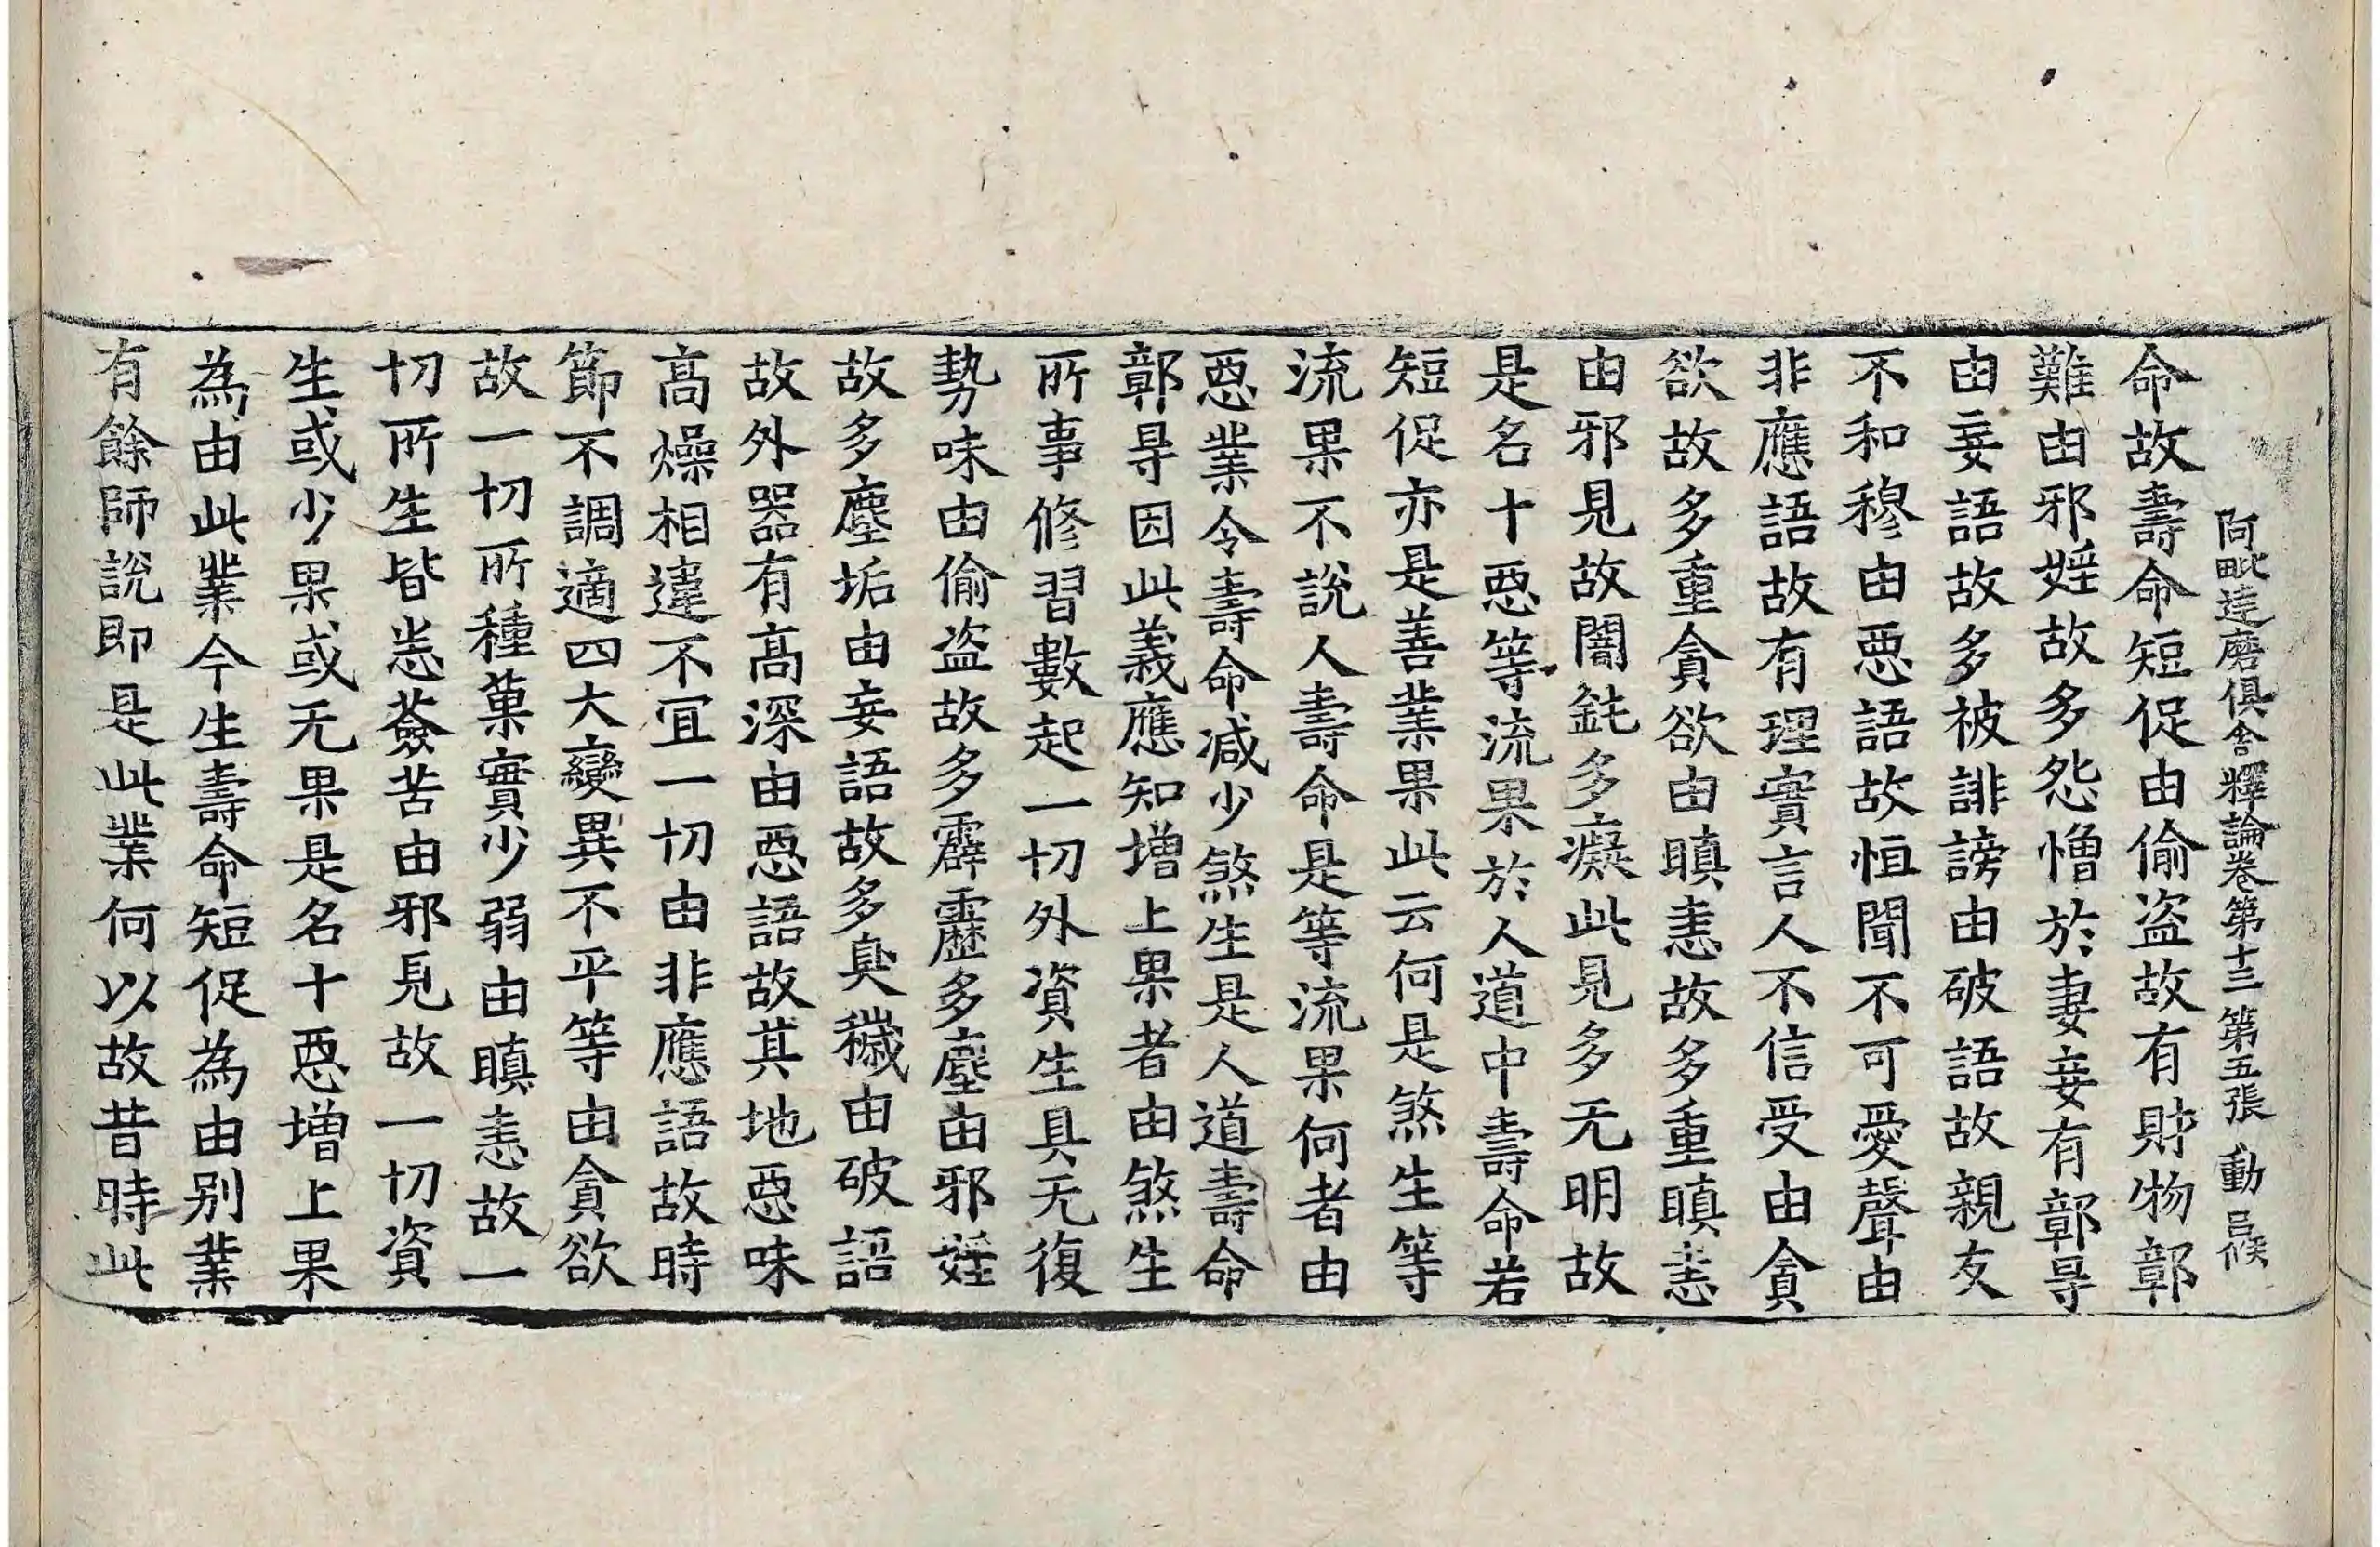 阿毗達磨俱舍釋論卷第十三 第五張 動
命故壽命短促由偷盗故有財物鄣
難由邪婬故多怨憎於妻妾有鄣㝵
由妄語故多被誹謗由破語故親友
不和穆由惡語故恒聞不可愛聲由
非應語故有理實言人不信受由貪
欲故多重貪欲由瞋恚故多重瞋恚
由邪見故闇鈍多癡此見多无明故
是名十惡等流果於人道中壽命若
短促亦是善業果此云何是煞生等
流果不說人壽命是等流果何者由
惡業令壽命减少煞生是人道壽命
鄣㝵因此義應知增上果者由煞生
所事修習數起一切外資生具无復
勢味由偷盗故多霹靂多塵由邪婬
故多塵垢由妄語故多臭穢由破語
故外器有高深由惡語故其地惡味
高燥相違不宜一切由非應語故時
節不調適四大變異不平等由貪欲
故一切所種菓實少弱由瞋恚故一
切所生皆悉薟苦由邪見故一切資
生或少果或无果是名十惡增上果
為由此業今生壽命短促為由别業
有餘師說即是此業何以故昔時此